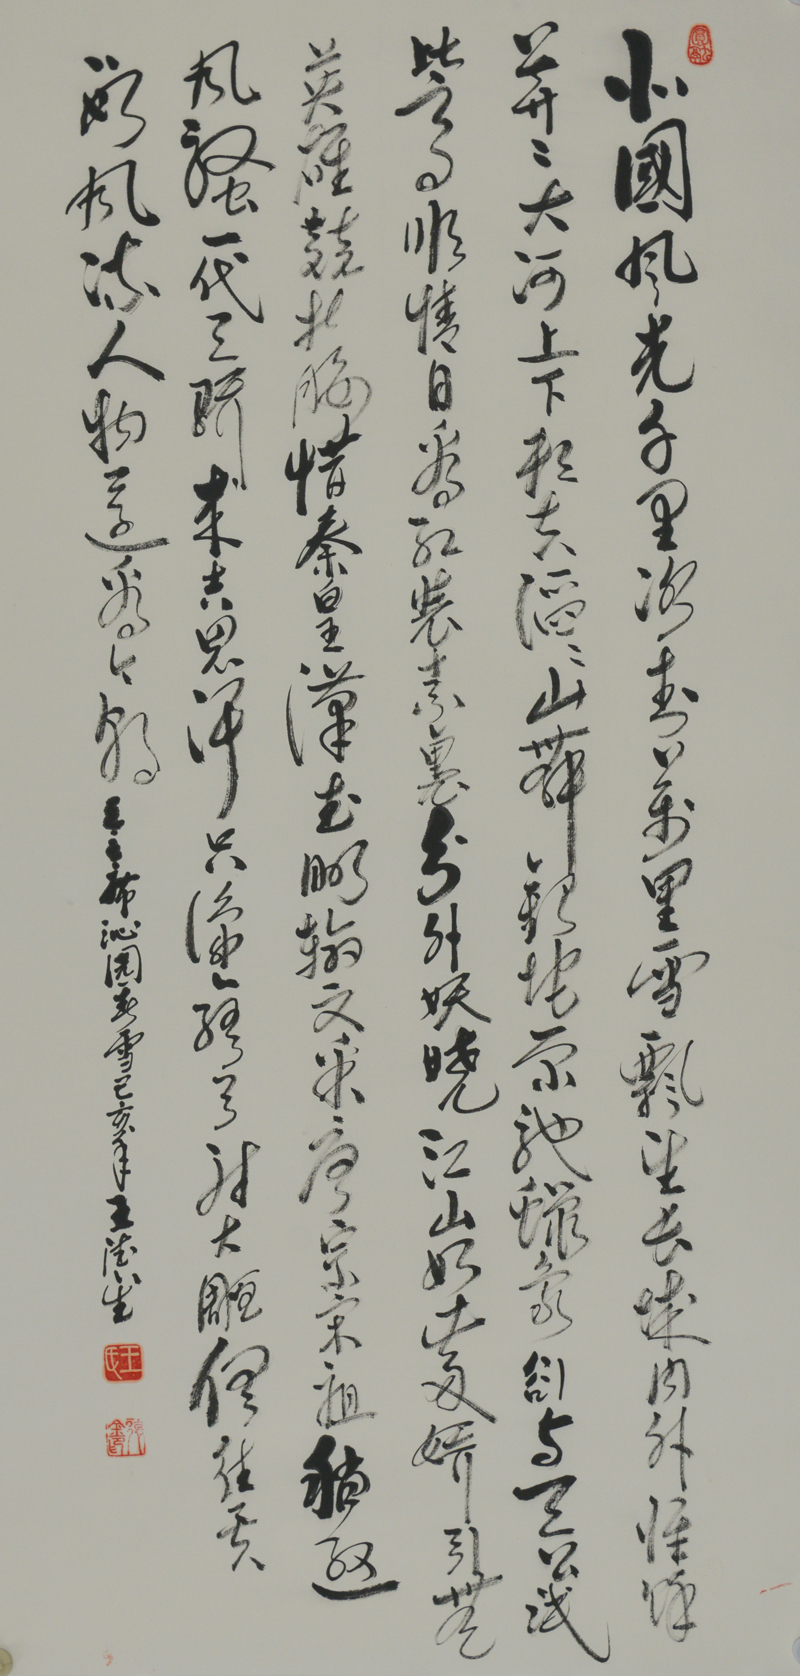 北國風光千里冰封萬里雪飄望長城內外惟餘
莽〻大河上下頓失滔〻山舞銀蛇原馳蠟象欲與天公試
比高須晴日看紅裝素裹分外妖嬈江山如此多嬌引無
英雄競折腰惜秦皇漢武略輸文采唐宗宋祖稍遜
風騷一代天驕成吉思汗只識彎弓射大雕俱往矣
數風流人物還看今朝 毛主席沁园春雪己亥年王